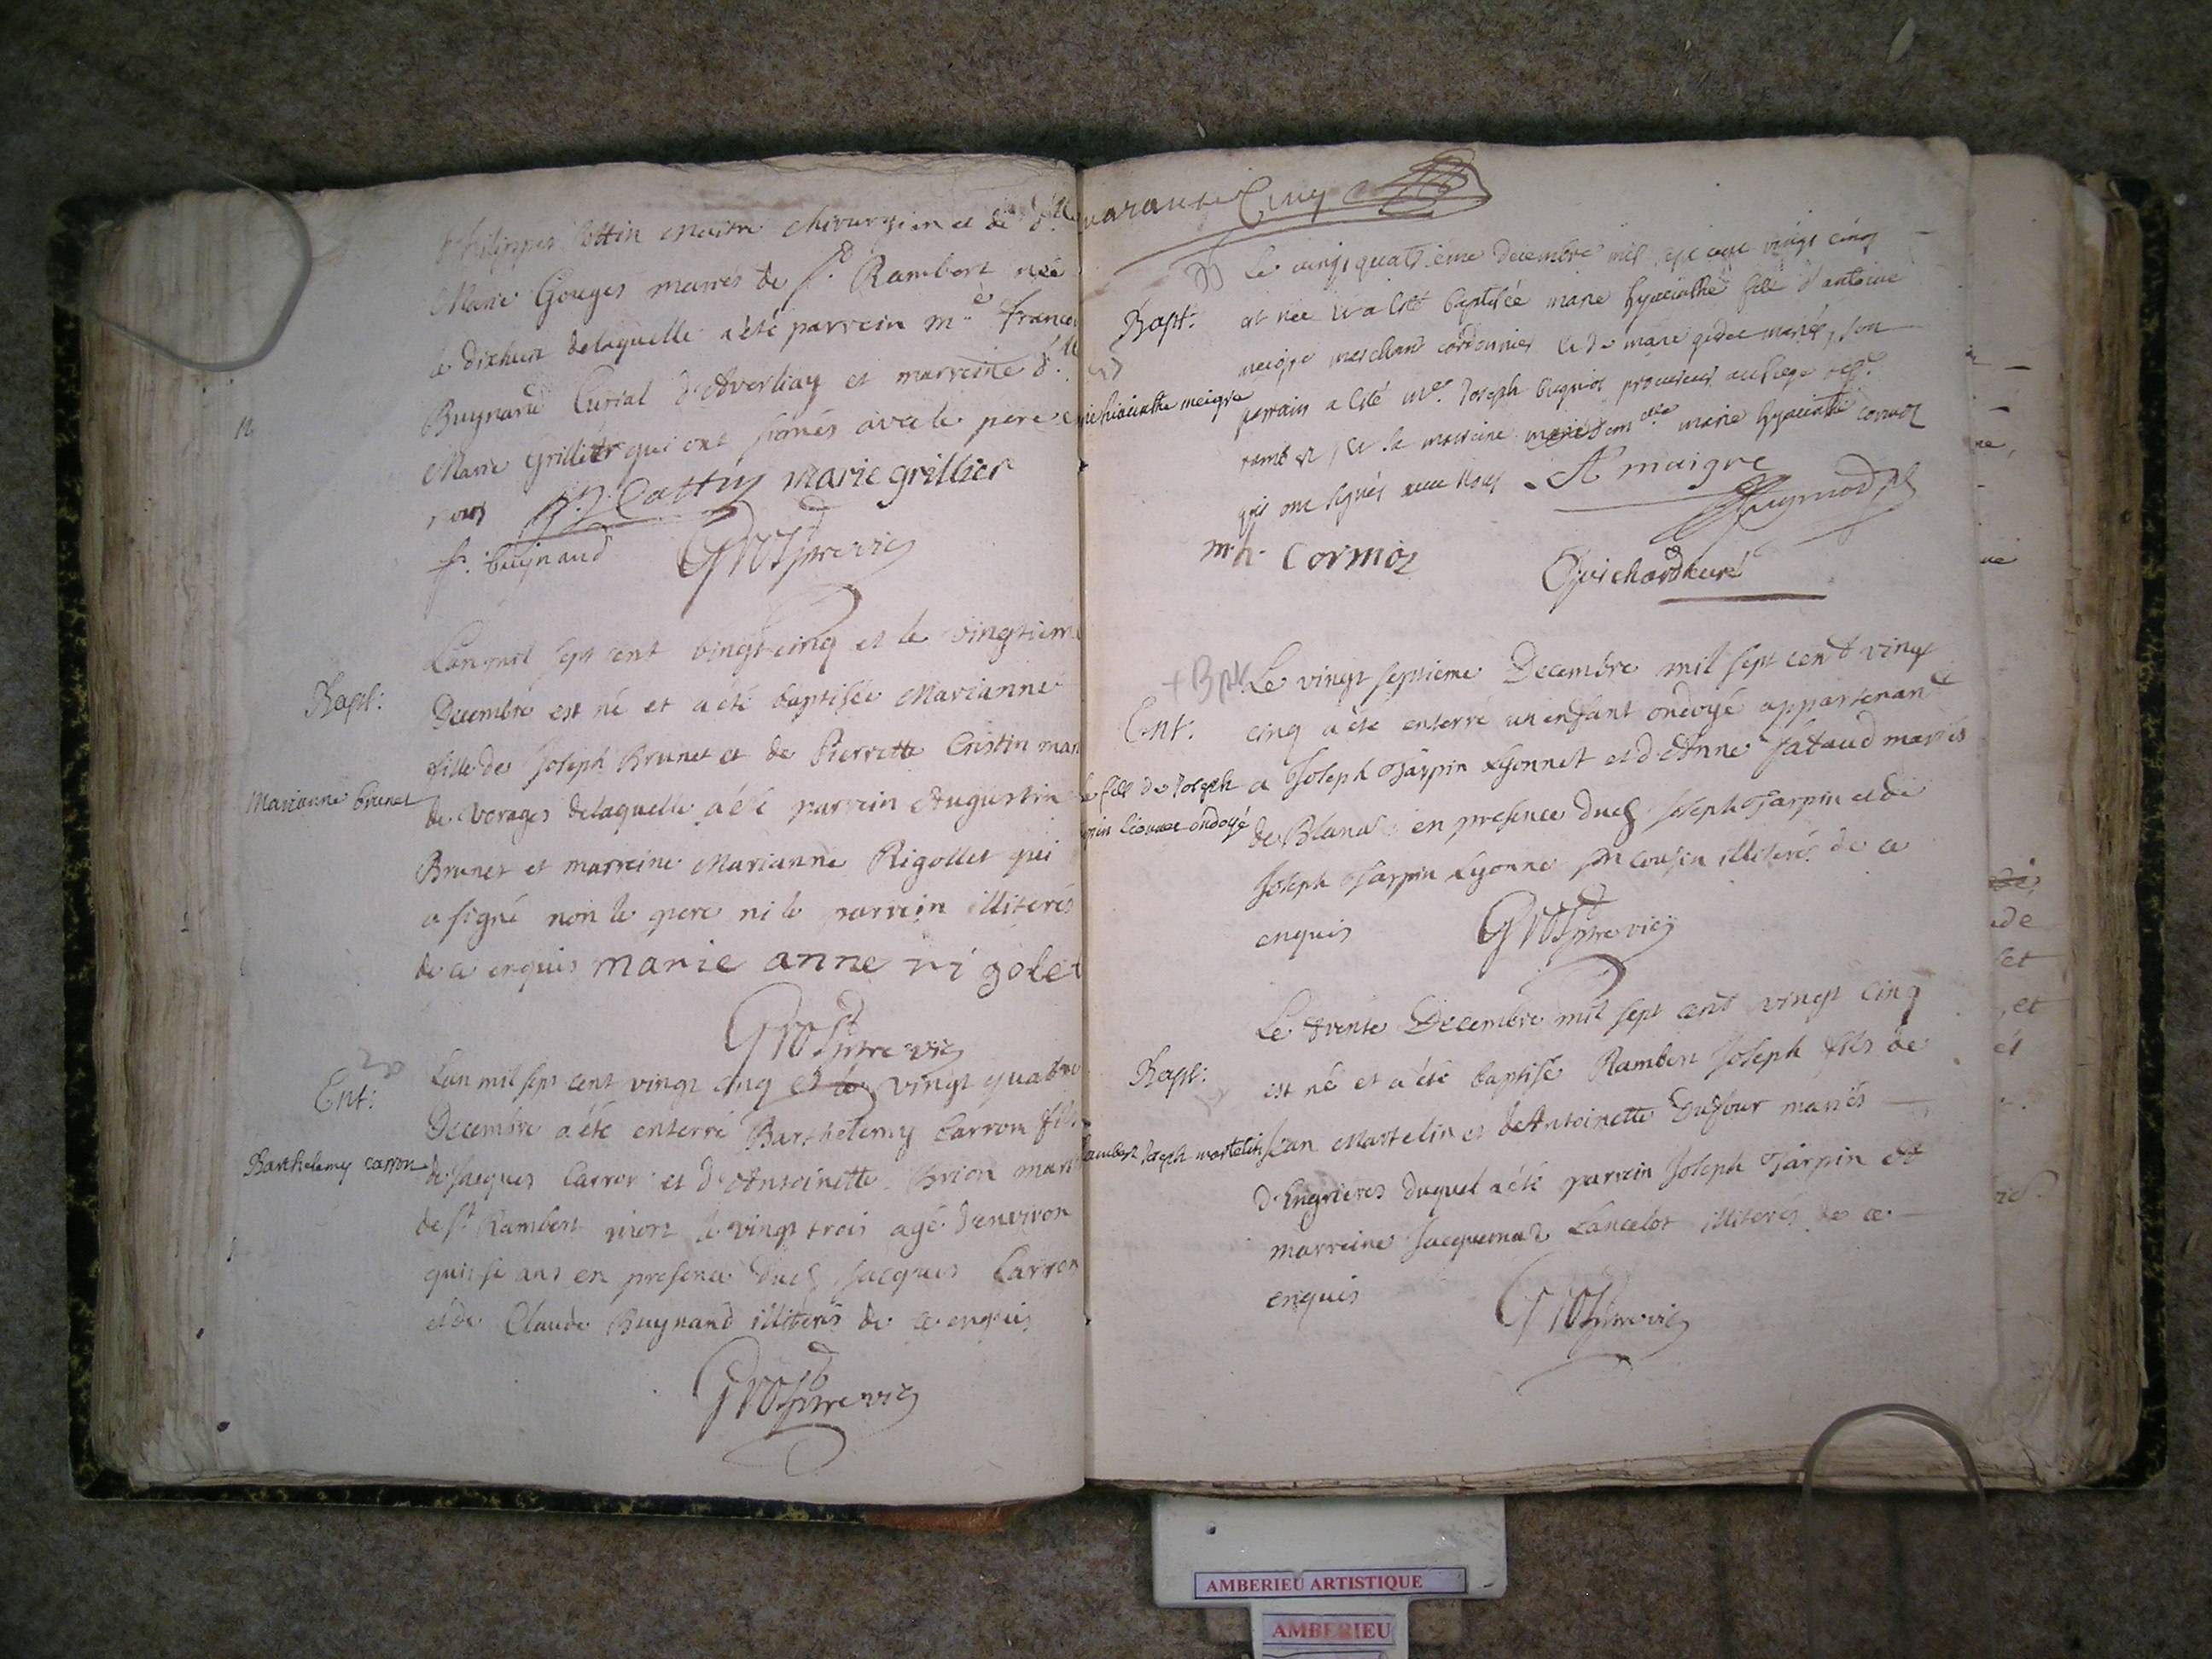 Philippes Cottin maitre chirurgien et de d.lle
Marie Gouges mariés de S.t Rambert née
le dixhuit delaquelle a été parrein m.e Francoi
Buynand Curial d'Averliay et marreine d.lle
Marie Grillier qui ont signés avec le pere e
nous
Cottin marie grillier
f. buynand
Gros pre vic
Bapt:
Marianne brunet
L'an mil sept cent vingt cinq et le vingtieme
Decembre est né et a été baptisée Marianne
fille de Joseph Brunet et de Pierrette Cristin mar
de Vorages delaquelle a été parrein Augustin
Brunet et marreine Marianne Rigollet qui
a signé non le pere ni le parrein illiterés
de ce enquis marie anne rigolet
Gros pre vic
Ent:
Barthelemy carron
L'an mil sept cent vingt cinq et le vingt quatre
Decembre a été enterré Barthelemy Carron fils
de Jacques Carron et d'Antoinette Brion mari
de S.t Rambert mort le vingt trois agé d'environ
quinse ans en presence dud Jacques Carron
et de Claude Buynand illiterés de ce enquis
Gros pre vic
uarante Cinq
Bapt:
rie hiacinthe meigre
Le vingt quatrieme decembre mil sept cent vingt cinq
est née et a esté baptisée marie hyacinthe fille d'antoine
meigre marchand cordonnier et de marie gedee mariés, son
parrain a esté m.e Joseph bugniot procureur au siege de S.t
rambert, et la marreine marie dem.elle marie hyacinthe cormoz
qui ont signés avec nous A maigre
m. h. Cormoz
Guichard curé
+ Bpt.
Ent:
le fils de Joseph
rpin lionnet ondoyé
Le vingt septieme Decembre mil sept cent vingt
cinq a été enterré un enfant ondoyé appartenant
a Joseph Tarpin Lyonnet et d'Anne Jataud mariés
de Blanas en presence dud Joseph Tarpin et de
Joseph Tarpin Lyonne son cousin illiterés de ce
enquis
Gros pre vic
Bapt:
Rambert Joseph martelin
Le trente Decembre mil sept cent vingt cinq
est né et a été baptisé Rambert Joseph fils de
Jean Martelin et d'Antoinette Dufour mariés
d'Engrieres duquel a été parrein Joseph Tarpin et
marreine Jacquemaz Lancelot illiterés de ce
enquis
Gros pre vic
AMBERIEU ARTISTIQUE
AMBERIEU